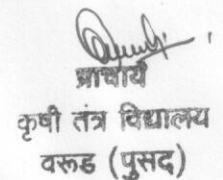 प्राचार्य
कृषी तंत्र विद्यालय
वरूड (पुसद)